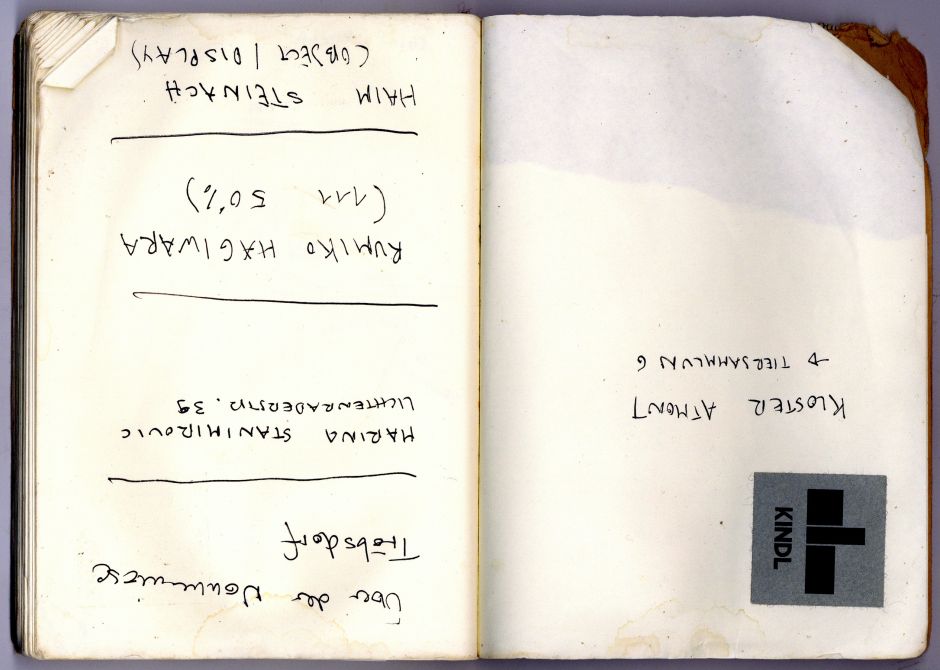 KINDL
KLOSTER ATMONT
→ TIERSAMMLUNG
Über der
Tröbsdorf
MARINA STANIMIROVIC
LICHTENRADERSTR. 39
RUMIKO HAGIWARA
(111 50%)
HAIM STEINACH
(OBJECT | DISPLAY)